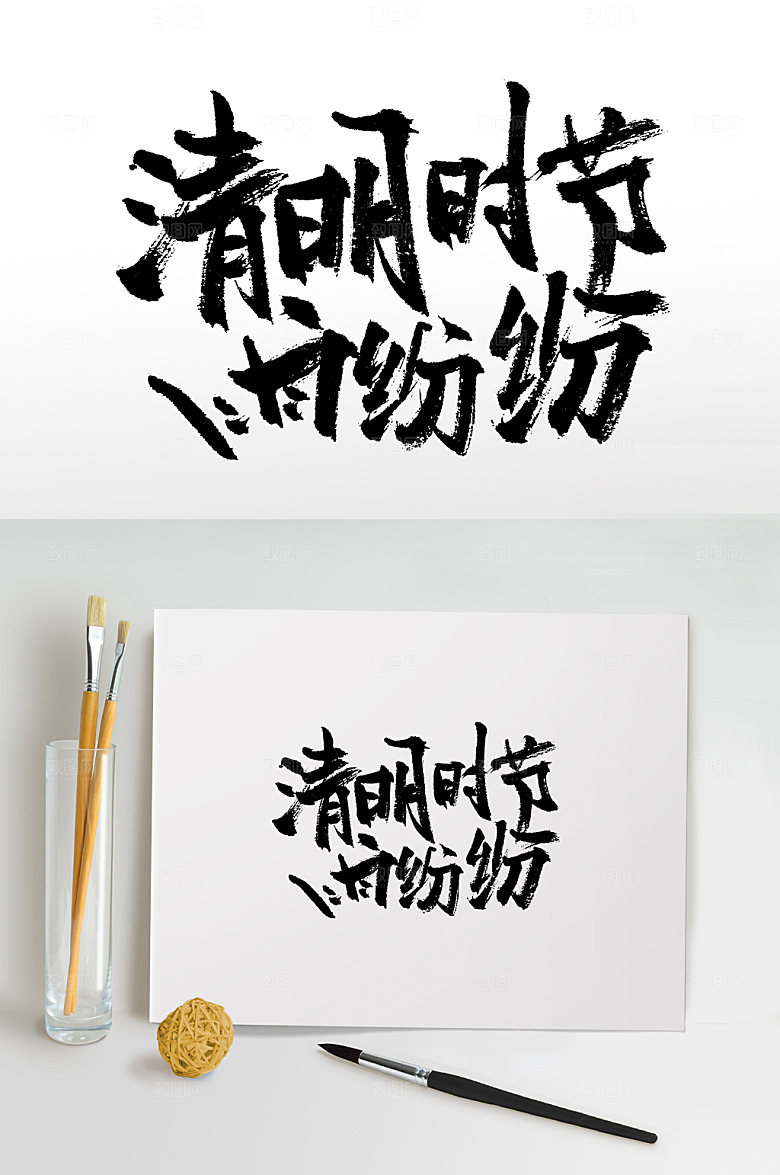 清明时节
雨纷纷
清明时节
雨纷纷